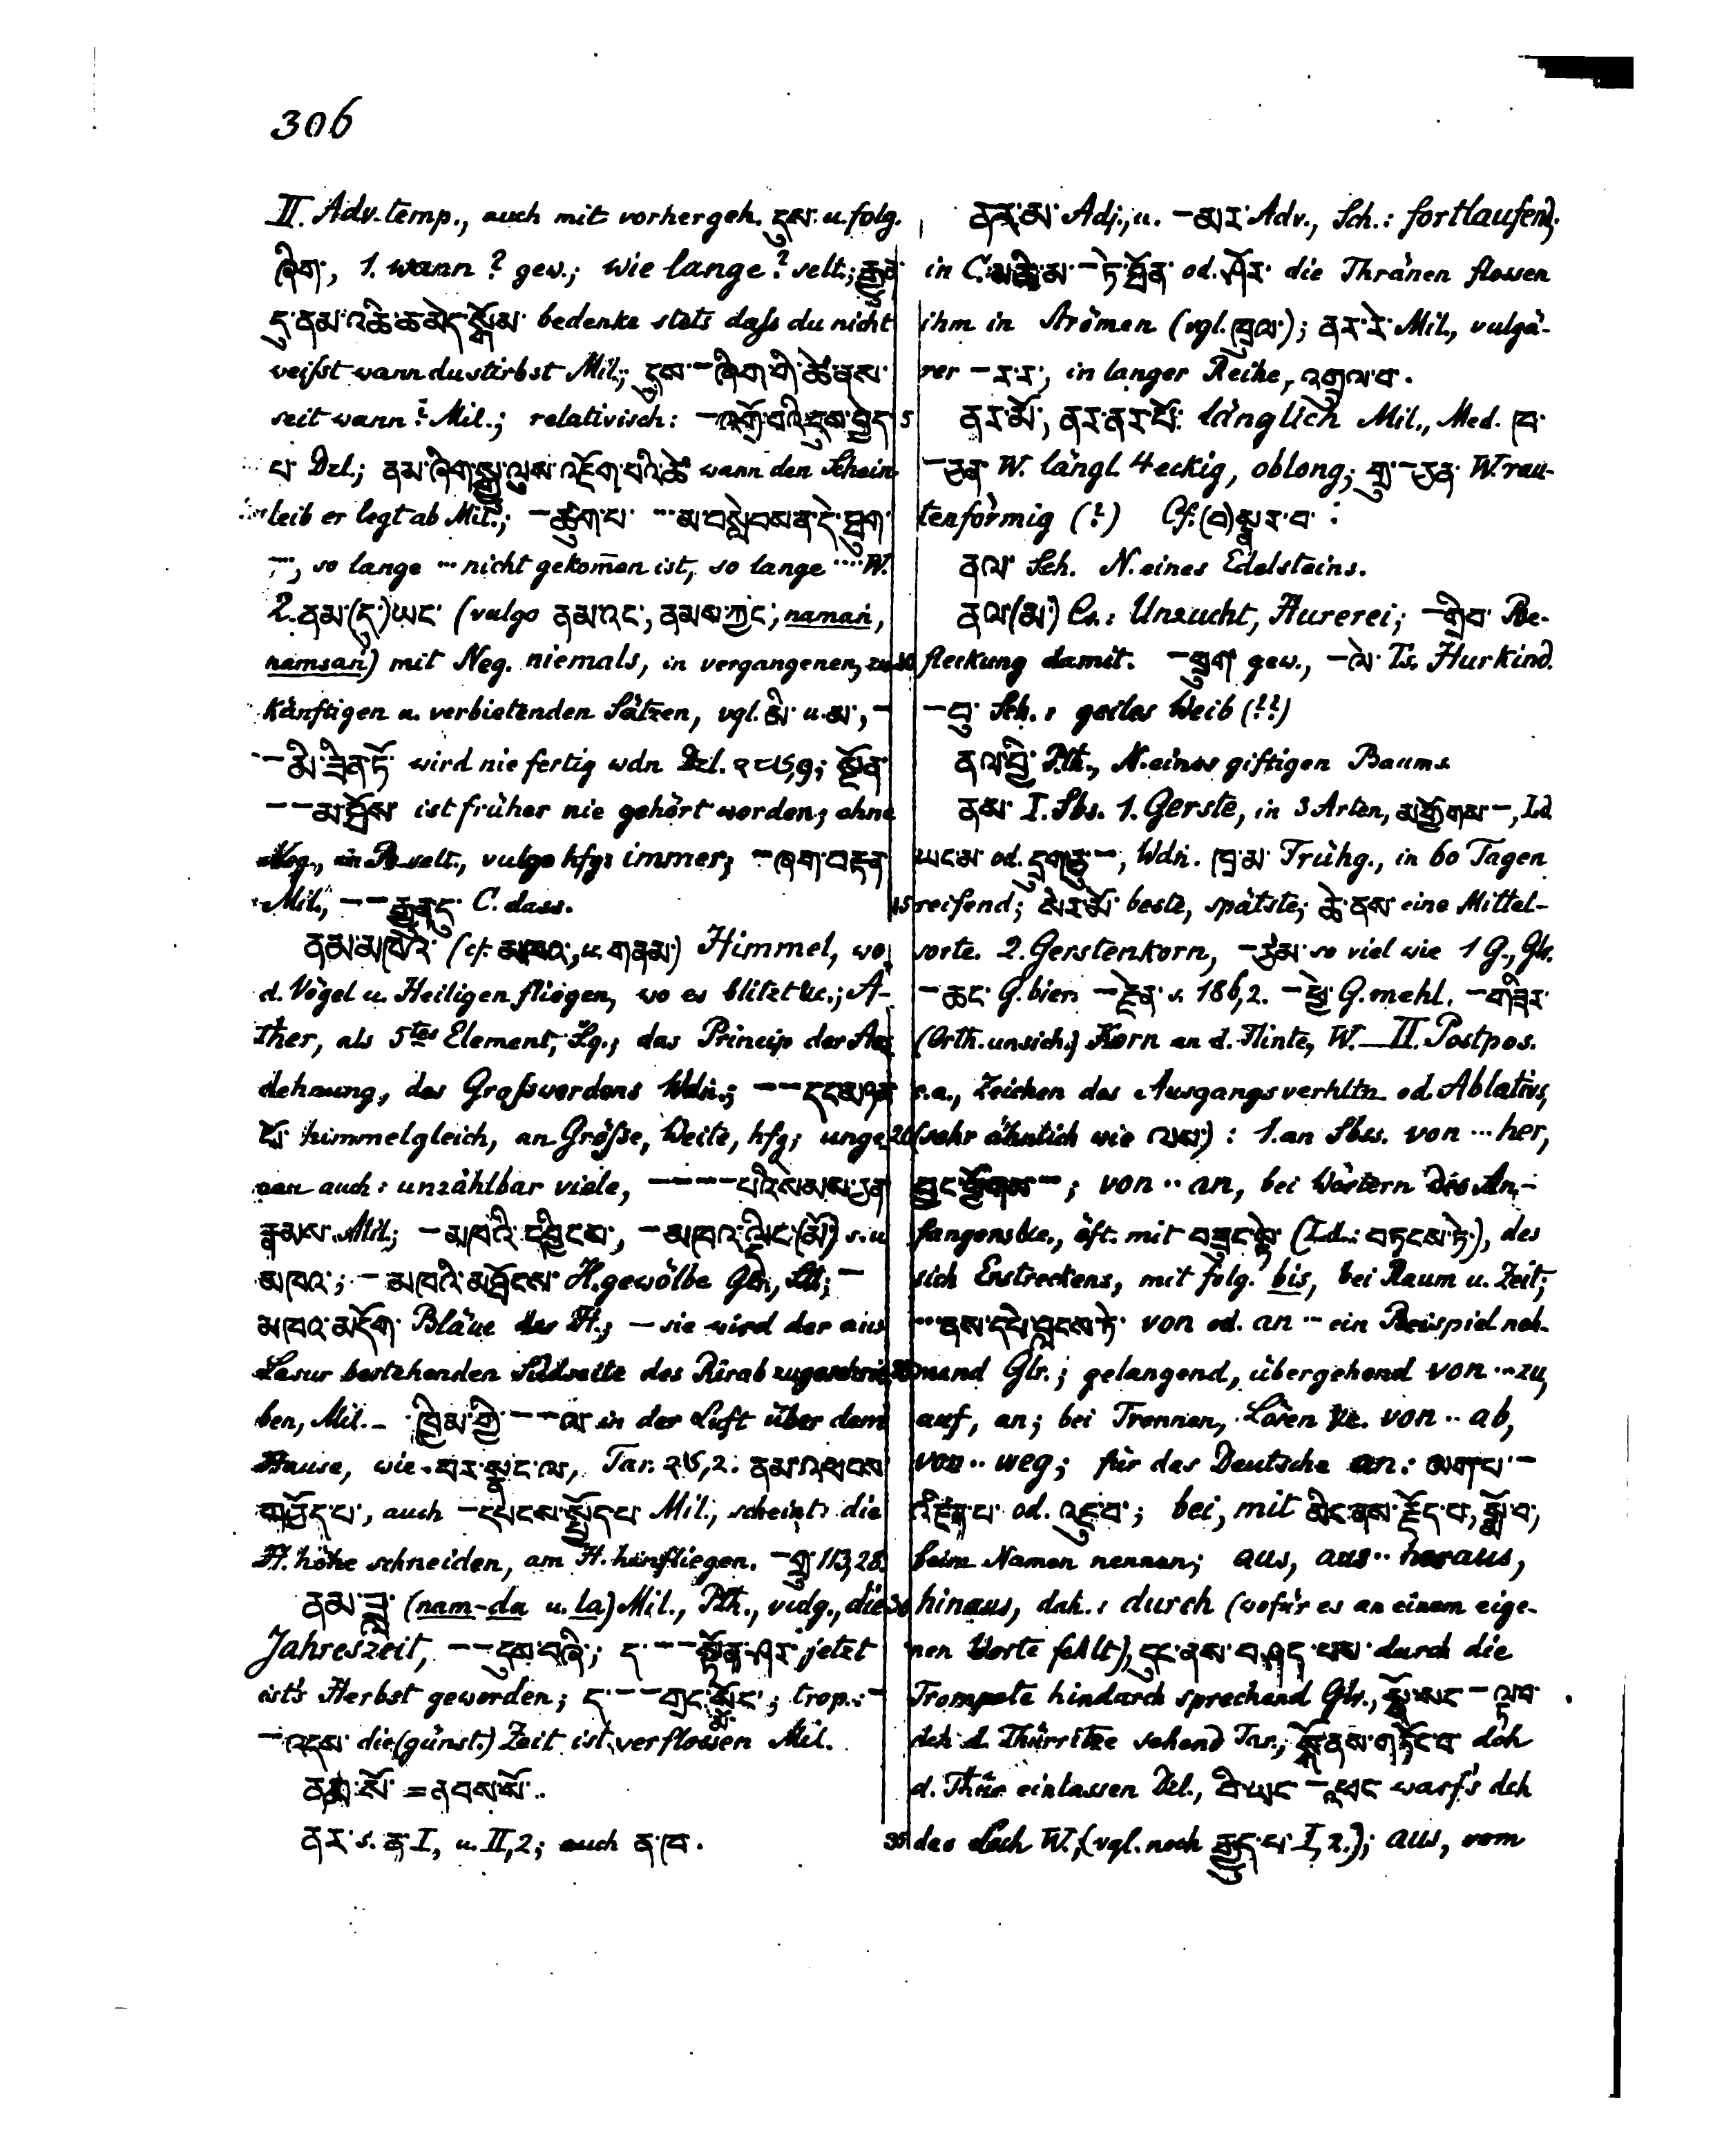 306
II. Adv. temp., auch mit vorhergeh. དུས་ u. folg.
ཞིག་, 1. wann? gew.; wie lange? selt.; རྒྱུན་
དུ་ནམ་འཆི་ཆ་མེད་སྒོམ་ bedenke stets daſs du nicht
weiſst wann du stirbst Mil.; དུས་–ཞིག་གི་ཚེ་ནས་
seit wann? Mil.; relativisch: –འགྲོ་བའི་དུས་བྱེད་
པ་ Dzl.; ནམ་ཞིག་སྒྱུ་ལུས་འཇོག་པའི་ཚེ་ wann den Schein-
leib er legt ab Mil.; –ཚུག་པ་ ··· མ་བསླེབས་ན་དེ་ཐུག་
···, so lange ··· nicht gekom̄en ist, so lange ···· W.
2. ནམ་(དུ་)ཡང་ (vulgo ནམ་འང་, ནམས་ཀྱང་, namaṅ,
namsaṅ) mit Neg. niemals, in vergangenen, zu-
künftigen u. verbietenden Sätzen, vgl. མི་ u. མ་, –
–མི་ཟིན་ཏོ་ wird nie fertig wdn Dzl. ༢༨༦,9; སྔོན་
––མ་ཐོས་ ist früher nie gehört worden; ohne
Neg., in B. selt., vulgo hfg: immer; –ཞག་བརྟན་
Mil., ––རྒྱུན་དུ་ C. dass.
ནམ་མཁའ་ (cf. མཁའ་, u. གནམ་) Himmel, wo
d. Vögel u. Heiligen fliegen, wo es blitzt &c.; Ä-
ther, als 5tes Element, Lg.; das Princip der Aus-
dehnung, des Groſswerdens Wdn.; ––དང་མཉམ་
པ་ himmelgleich, an Gröſse, Weite, hfg; unge-
nau auch: unzählbar viele, ––––པའི་སེམས་ཅན་
རྣམས་ Mil.; –མཁའི་དབྱིངས་, –མཁའ་ལྡིང་(མོ་) s. u.
མཁའ་; –མཁའི་མཐོངས་ H.gewölbe Glr., Lt.; –
མཁའ་མདོག་ Bläue des H.; – sie wird der aus
Lasur bestehenden Südseite des Rirab zugeschrie-
ben, Mil. – ཁྱིམ་གྱི་––ལ་ in der Luft über dem
Hause, wie བར་སྣང་ལ་, Tar. ༢༦,2. ནམ་འཕངས་
གཅོད་པ་, auch –དཔངས་སྤྱོད་པ་ Mil., scheint: die
H. höhe schneiden, am H. hinfliegen. –གྲུ་ 113,28.
ནམ་ཟླ་ (nam-da u. la) Mil., Pth., vulg., die
Jahreszeit, ––དུས་བཞི་; ད་––སྟོན་ཤར་ jetzt
ist's Herbst geworden; ད་––གྲང་མོང་; trop.: –
–འདས་ die (günst.) Zeit ist verflossen Mil.
ནམ་སོ་ = ནབས་སོ་.
ནར་ s. ན་ I, u. II, 2; auch ན་ཁ་.
ནར་མ་ Adj., u. –མར་ Adv., Sch.: fortlaufend;
in C. མཆི་མ་–ཏེ་ཐོན་ od. ཤོར་ die Thränen flossen
ihm in Strömen (vgl. ཁྲལ་); ནར་རེ་ Mil., vulgä-
rer –ར་ར་, in langer Reihe, འགྲུལ་བ་.
5 ནར་མོ་, ནར་ནར་པོ་ länglich Mil., Med. ཁ་
–ཅན་ W. längl. 4eckig, oblong; གྲུ་–ཅན་ W. rau-
tenförmig (?) Cf. (བ)སྣར་བ་.
ནལ་ Sch. N. eines Edelsteins.
ནལ་(མ་) Cs.: Unzucht, Hurerei; –གྲིབ་ Be-
10 fleckung damit. –ཕྲུག་ gew., –ལེ་ Ts. Hurkind.
–བུ་ Sch.: geiles Weib (??)
ནལ་བྱི་ Pth., N. eines giftigen Baums
ནས་ I. Sbs. 1. Gerste, in 3 Arten, མགྱོགས་–, Ld.
ཡང་མ་ od. དྲུག་ཅུ་–, Wdn. ཁྲ་མ་ Frühg., in 60 Tagen
15 reifend; སེར་མོ་ beste, späteste; ཆེ་ནས་ eine Mittel-
sorte. 2. Gerstenkorn, –ཙམ་ so viel wie 1 G., Glr.
–ཆང་ G.bier. –རྗེན་ s. 186,2. –ཕྱེ་ G.mehl. –གཟེར་
(Orth. unsich.) Korn an d. Flinte, W. — II. Postpos.
c.a., Zeichen des Ausgangsverhltn. od. Ablativs,
20 (sehr ähnlich wie ལས་): 1. an Sbss. von ··· her,
བྱང་ཕྱོགས་–; von ·· an, bei Wörtern des An-
fangens &c., öft. mit བཟུང་སྟེ་ (Ld.: བཏངས་ཏེ་), des
sich Erstreckens, mit folg. bis, bei Raum u. Zeit;
··· ནས་དཔེ་བླངས་ཏེ་ von od. an ··· ein Beispiel neh-
25 mend Glr.; gelangend, übergehend von ··· zu,
auf, an; bei Trennen, Lösen &c. von ·· ab,
von ·· weg; für das Deutsche an: ལག་པ་–
འཛིན་པ་ od. འཇུ་བ་; bei, mit མིང་ནས་རྗོད་པ་, སྨྲོ་བ་,
beim Namen nennen; aus, aus ·· heraus,
30 hinaus, dah.: durch (wofür es an einem eige-
nen Worte fehlt), དུང་ནས་བཤད་པས་ durch die
Trompete hindurch sprechend Glr., སྒོ་སང་–ལྟ་བ་
dch d. Thürritze sehend Tar., སྒོ་ནས་གཏོང་བ་ dch
d. Thür einlassen Dzl., བི་ཡང་–འཕང་ warf's dch
35 das Loch W., (vgl. noch རྒྱུད་པ་ I, 2.); aus, vom